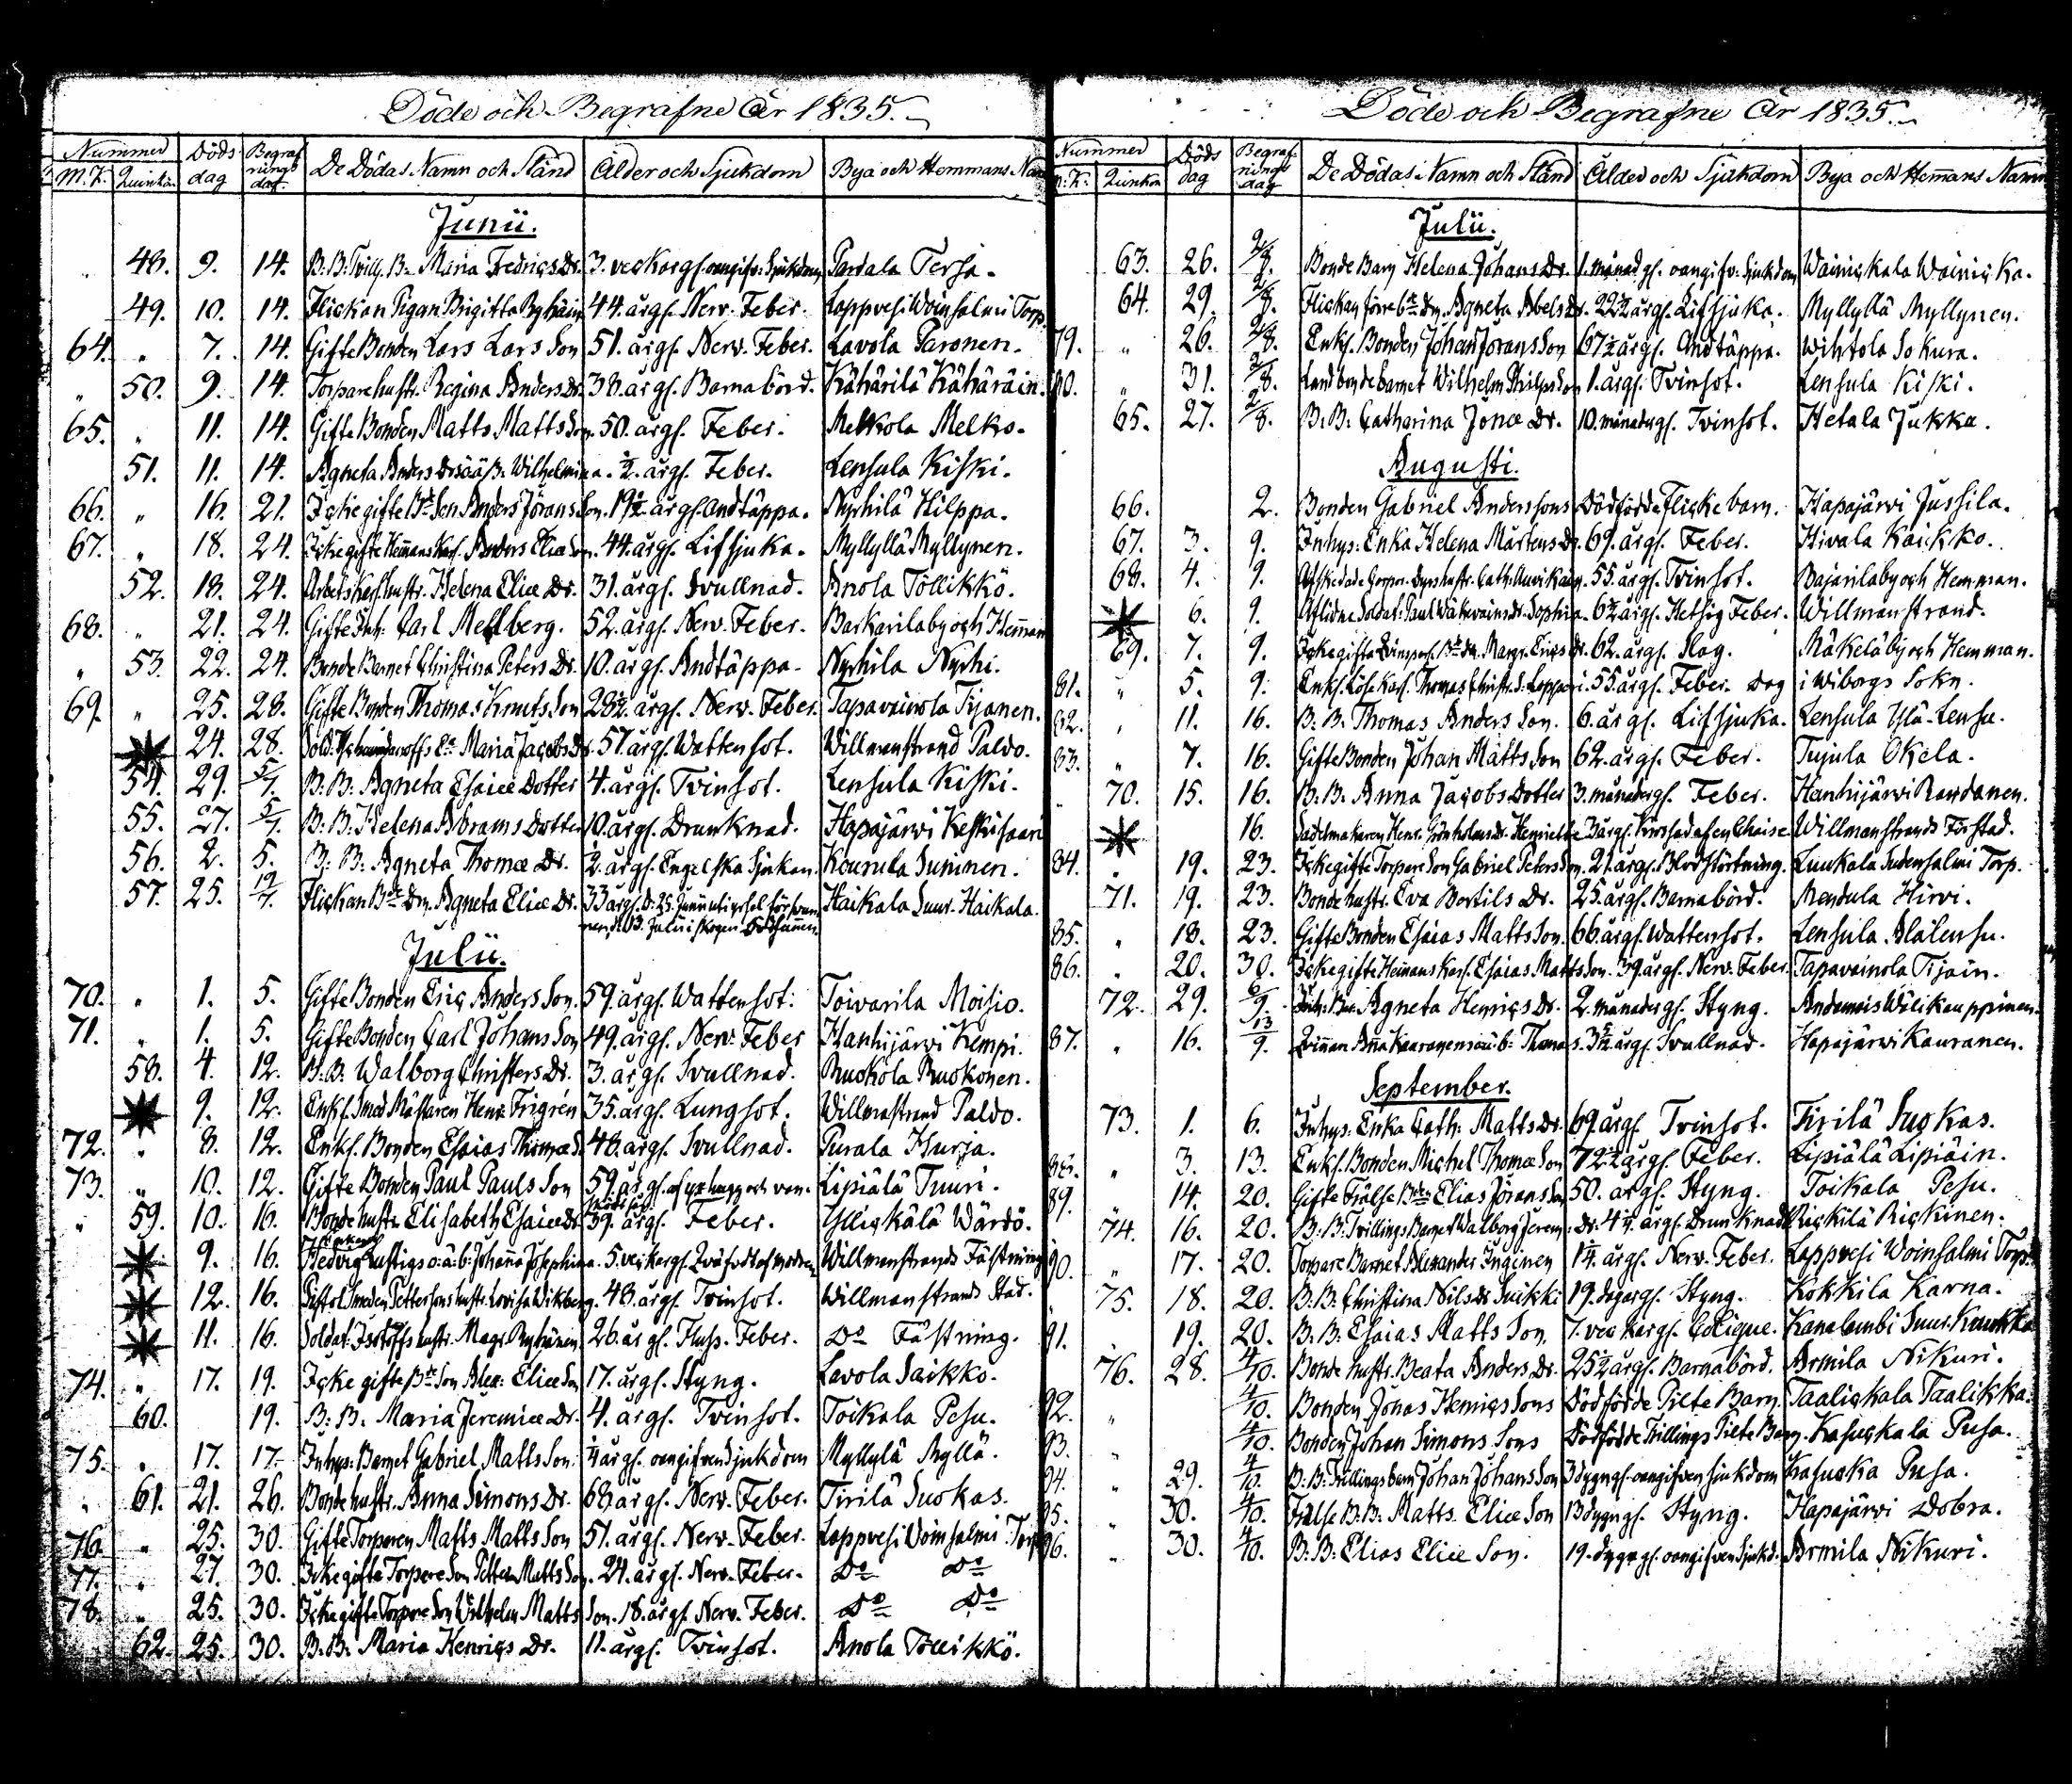 Döde och Begrafne År 1835.
Nummer Döds dag Begrafnings dag De Dödas Namn och Stånd Ålder och Sjukdom Bya och Hemmans Nam
M.K. Quinkön
Junii.
48. 9. 14. B: B: Trill: B:n Maria Fredrics Dr. 3. veckor gl. oangifv: Sjukdom Pardala Tersa.
49. 10. 14. Flickan Pigan Brigitta Ryhäin 44. år gl. Nerv. Feber. Lappvesi Woinsalmi Torp.
64. " 7. 14. Gifte Bonden Lars Lars Son 51. år gl. Nerv. Feber. Lavola Paronen.
" 50. 9. 14. Torpare hustr. Regina Anders Dr. 38. år gl. Barnabörd. Kähärilä Kähäräin.
65. " 11. 14. Gifte Bonden Matts Matts Son. 50. år gl. Feber. Melkola Melko.
51. 11. 14. Agneta Anders Drs oä. B: Wilhelmina. ½. år gl. Feber. Lensula Kiski.
66. " 16. 21. Icke gifte Bde Son Anders Jörans Son. 19½ år gl. Andtäppa. Nyrhilä Hilppa.
67. " 18. 24. Icke gifte Hemmans Karl. Anders Eliæ Son. 44. år gl. Lifsjuka. Myllylä Myllynen.
52. 18. 24. Arbets Karl. hustr. Helena Eliæ Dr. 31. år gl. Svullnad. Anola Töllikkö.
68. " 21. 24. Gifte Inh: Carl Mellberg. 52. år gl. Nerv. Feber. Barkarila by och Hemman
" 53. 22. 24. Bonde Barnet Christina Peters Dr. 10. år gl. Andtäppa. Nyrhila Nyrhi.
69. " 25. 28. Gifte Bonden Thomas Knuts Son 28½. år gl. Nerv. Feber. Tapavainola Tijanen.
24. 28. Sold: Ea Maria Jacobs Dr. 57. år gl. Wattensot. Willmanstrand Paldo.
54. 29. 5/7. B: B: Agneta Esaiæ Dotter 4. år gl. Tvinsot. Lensula Kiski.
55. 27. 5/7. B: B: Helena Abrams Dotter 10. år gl. Drunknad. Hapajärvi Keskisaari
56. 2. 5. B: B: Agneta Thomæ Dr. ½. år gl. Engelska Sjukan. Kounula Summen.
57. 25. 12/7. Flickan Bde Dn. Agneta Eliæ Dr. 33 år gl. D. 25. Junii utur sol försvunnen d. 3. Julii i skogen död funnen. Haikala Suur-Haikala.
Julii.
70. " 1. 5. Gifte Bonden Eric Anders Son. 59. år gl. Wattensot. Toivarila Moisio.
71. " 1. 5. Gifte Bonden Carl Johans Son 49. år gl. Nerv. Feber Hanhijärvi Kempi.
58. 4. 12. B: B: Walborg Christers Dr. 3. år gl. Svullnad. Ruokola Ruokonen.
9. 12. Enkl. Smed Mästaren Henr: Frigrén 35. år gl. Lungsot. Willmanstrand Paldo.
72. " 8. 12. Enkl. Bonden Esaias Thomæ S. 48. år gl. Svullnad. Purala Hurja.
73. " 10. 12. Gifte Bonden Paul Pauls Son 59. år gl. af yxhugg och van- Lipiälä Tuuri.
" 59. 10. 16. Bonde hustr. Elisabeth Esaiæ Dr. 39. år gl. Feber. Yllickälä Wärdö.
9. 16. Hedvig Lustigs o: ä: b: Johanna Josephina. 5. veckor gl. Qväfvd af modren Willmanstrands Fästning
12. 16. Pistol Smeden Petter Sons hustr. Lovisa Wikberg. 48. år gl. Tvinsot. Willmanstrands Stad.
11. 16. Soldat: hustr. Magr. Ryhänen 26. år gl. Fluss. Feber. Do Fästning.
74. " 17. 19. Icke gifte Bde Son Alex: Eliæ Son 17. år gl. Styng. Lavola Saikko.
60. 19. B: B: Maria Jeremiæ Dr. 4. år gl. Tvinsot. Toikala Pesu.
75. " 17. 17. Inhys: Barnet Gabriel Matts Son. ¼ år gl. oangifven Sjukdom Myllylä Myllä.
" 61. 21. 26. Bonde hustr. Anna Simons Dr. 68. år gl. Nerv. Feber. Tirilä Suokas.
76. " 25. 30. Gifte Torparen Matts Matts Son 51. år gl. Nerv. Feber. Lappvesi Woinsalmi Torp
77. " 27. 30. Icke gifte Torpare Son Petter Matts Son. 24. år gl. Nerv. Feber. Do Do
78. " 25. 30. Icke gifte Torpare Son Wilhelm Matts Son. 18. år gl. Nerv. Feber. Do Do
62. 25. 30. B: B: Maria Henrics Dr. 11. år gl. Tvinsot. Anola Töllikkö.
Döde och Begrafne År 1835.
Nummer Döds dag Begrafnings dag De Dödas Namn och Stånd Ålder och Sjukdom Bya och Hemans Namn
M:K: Quinkön
Julii.
63. 26. 2/8. Bonde Barn Helena Johans Dr. 1. månad gl. oangifv: Sjukdom Wainickala Wainicka.
64. 29. 2/8. Flickan förre Bde Dn. Agneta Abels Dr. 22½ år gl. Lifsjuka. Myllylä Myllynen.
79. " 26. 2/8. Enkl. Bonden Johan Jörans Son 67½ år gl. Andtäppa. Wihtola Sokura.
80. " 31. 2/8. Landbonde barnet Wilhelm Philps Son 1. år gl. Tvinsot. Lensula Kiski.
65. 27. 2/8. B: B: Catharina Jonæ Dr. 10. månader gl. Tvinsot. Hetala Jukka.
Augusti.
66. 2. Bonden Gabriel Anderssons Dödfödde Flicke barn. Hapajärvi Jussila.
67. 3. 9. Inhys: Enka Helena Mårtens Dr. 69. år gl. Feber. Hivala Kaikko.
68. 4. 9. Afskedade hustr. Cath: 55. år gl. Tvinsot. Bajarila by och Hemman.
6. 9. Aflidne Soldat: Paul Wäkeväins Dr. Sophia. 6½ år gl. Hetsig Feber. Willmanstrand.
69. 7. 9. Icke gifta Bde Dn. Margr. Erics Dr. 62. år gl. Slag. Mäkelä by och Hemman.
81. " 5. 9. Enkl. Löse Karl. Thomas Christ: S: Lapperi. 55. år gl. Feber. Dog i Wiborgs Sokn.
82. " 11. 16. B: B: Thomas Anders Son. 6. år gl. Lifsjuka. Lensula Ylä-Lensu.
83. " 7. 16. Gifte Bonden Johan Matts Son 62. år gl. Feber. Tujula Okela.
70. 15. 16. B: B: Anna Jacobs Dotter 3. månader gl. Feber. Hanhijärvi Randanen.
16. Sadelmakaren Henr: Grönholms Dr. Henriette 3 år gl. Körsad af en Chaise Willmanstrands Förstad.
84. " 19. 23. Icke gifte Torpare Son Gabriel Peters Son. 21. år gl. Blodstörtning. Luukala Sudensalmi Torp.
71. 19. 23. Bonde hustr. Eva Bertils Dr. 25. år gl. Barnabörd. Mendula Hirvi.
85. " 18. 23. Gifte Bonden Esaias Matts Son. 66. år gl. Wattensot. Lensula Alalensu.
86. " 20. 30. Icke gifte Hemans Karl. Esaias Matts Son. 39. år gl. Nerv. Feber. Tapavainola Tijain.
72. 29. 6/9. Inh: Bar: Agneta Henrics Dr. 2. månader gl. Styng. Andemois Wälikauppinen.
87. " 16. 13/9. Qvinnan Anna Kauranens oä: b: Thomas. 3½ år gl. Svullnad. Hapajärvi Kauranen.
September.
73. 1. 6. Inhys: Enka Cath: Matts Dr. 69 år gl. Tvinsot. Tirilä Suokas.
88. " 3. 13. Enkl. Bonden Michel Thomæ Son 72½ år gl. Feber. Lipiälä Lipiäin.
89. " 14. 20. Gifte Frälse Bden Elias Jörans Son 50. år gl. Styng. Toikala Pesu.
74. 16. 20. B: B: Trillings Barnet Walborg Jerem: Dr. 4½. år gl. Drunknad Rickilä Rickinen.
90. " 17. 20. Torpare Barnet Alexander Inginen 1¼. år gl. Nerv. Feber. Lappvesi Woinsalmi Torp.
75. 18. 20. B: B: Christina Nils Dr Suikki 19. dygn gl. Styng. Kokkila Karna.
91. 19. 20. B: B: Esaias Matts Son 7. veckor gl. Colique. Kanalambi Suur-Kuukka
76. 28. 4/10. Bonde hustr. Beata Anders Dr. 25½ år gl. Barnabörd. Armila Nikuri.
92. " 4/10. Bonden Jonas Henrics Sons Dödfödde Pilte Barn. Taalickala Taalikka.
93. " 4/10. Bonden Johan Simons Sons Dödfödde Trillings Pilte Barn. Kasuckala Pusa.
94. " 29. 4/10. B: B: Trillings barn Johan Johans Son 3 dygn gl. oangifven sjukdom Kasucka Pusa.
95. " 30. 4/10. Frälse B: B: Matts Eliæ Son 13 dygn gl. Styng. Hapajärvi Dobra.
96. " 30. 4/10. B: B: Elias Eliæ Son. 19. dygn gl. oangifven Sjukd. Armila Nikuri.